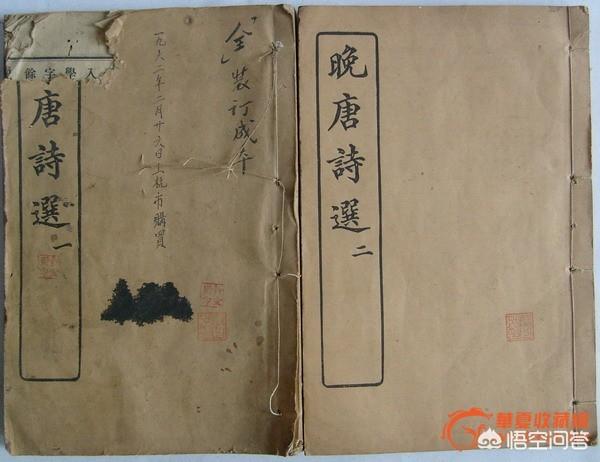 入學字餘
「全」裝订成本
一九六二年二月廿日上杭市購買
唐詩選一
晚唐詩選二
華夏收藏網
悟空问答